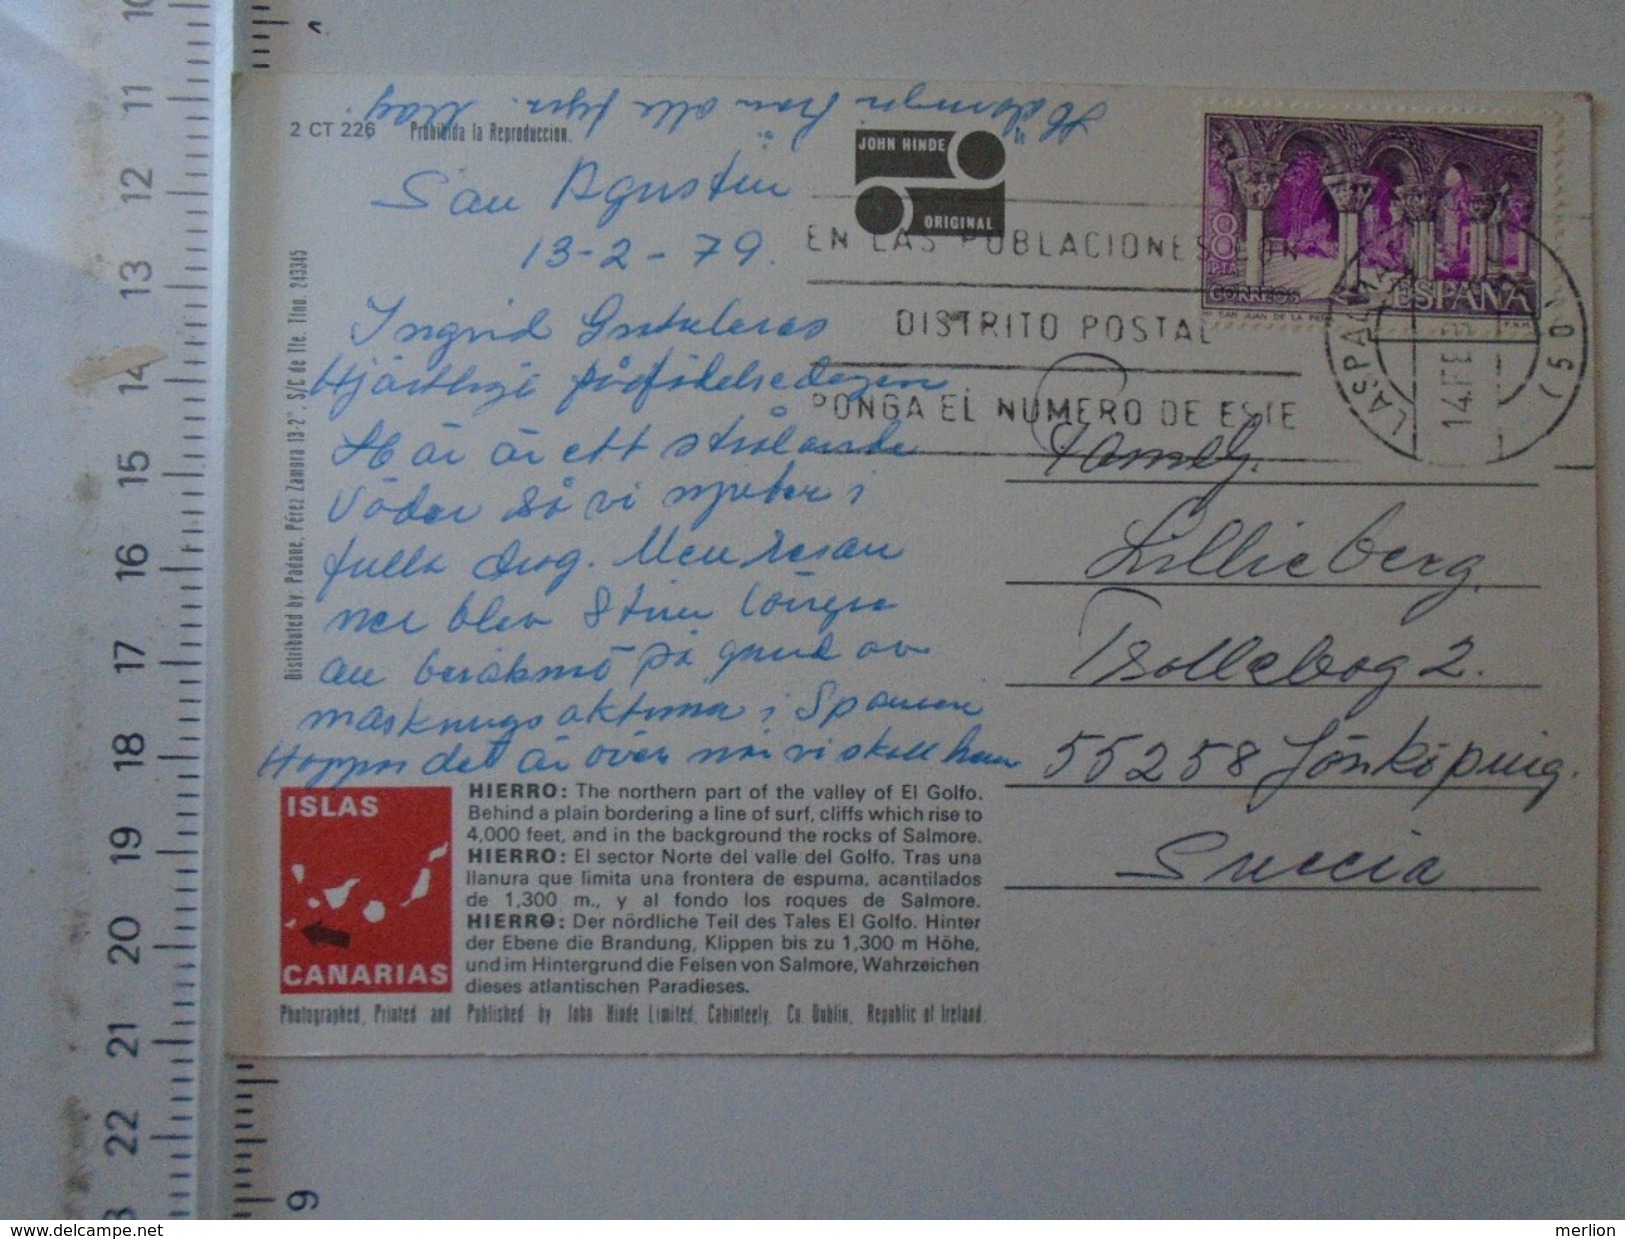 2 CT 226 Prohibida la Reproduccion.
JOHN HINDE
ORIGINAL
från alla
San Agustin
13-2-79.
Ingrid Gratuleras
Hjärtligt på födelsedagen
Här är ett strålande
Väder så vi njuter i
fulla drag. Men resan
ner blev 8 tim längre
än beräknad på grund av
maskningsaktionerna i Spanien
Hoppas det är över när vi skall hem
EN LAS POBLACIONES CON
DISTRITO POSTAL
PONGA EL NUMERO DE ESTE
8
PTA
CORREOS
ESPAÑA
SAN JUAN DE LA PEÑA
LAS PALMAS
14.FEB
(50)
Lillieberg.
2.
55258 Jönköping.
Suecia
Distributed by: Padane, Pérez Zamora 13-2º. S/C de Tfe. Tfno. 243345
ISLAS
CANARIAS
HIERRO: The northern part of the valley of El Golfo.
Behind a plain bordering a line of surf, cliffs which rise to
4,000 feet, and in the background the rocks of Salmore.
HIERRO: El sector Norte del valle del Golfo. Tras una
llanura que limita una frontera de espuma, acantilados
de 1,300 m., y al fondo los roques de Salmore.
HIERRO: Der nördliche Teil des Tales El Golfo. Hinter
der Ebene die Brandung, Klippen bis zu 1,300 m Höhe,
und im Hintergrund die Felsen von Salmore, Wahrzeichen
dieses atlantischen Paradieses.
Photographed, Printed and Published by John Hinde Limited, Cabinteely, Co. Dublin, Republic of Ireland.
10
11
12
13
14
15
16
17
18
19
20
21
22
9
merlion